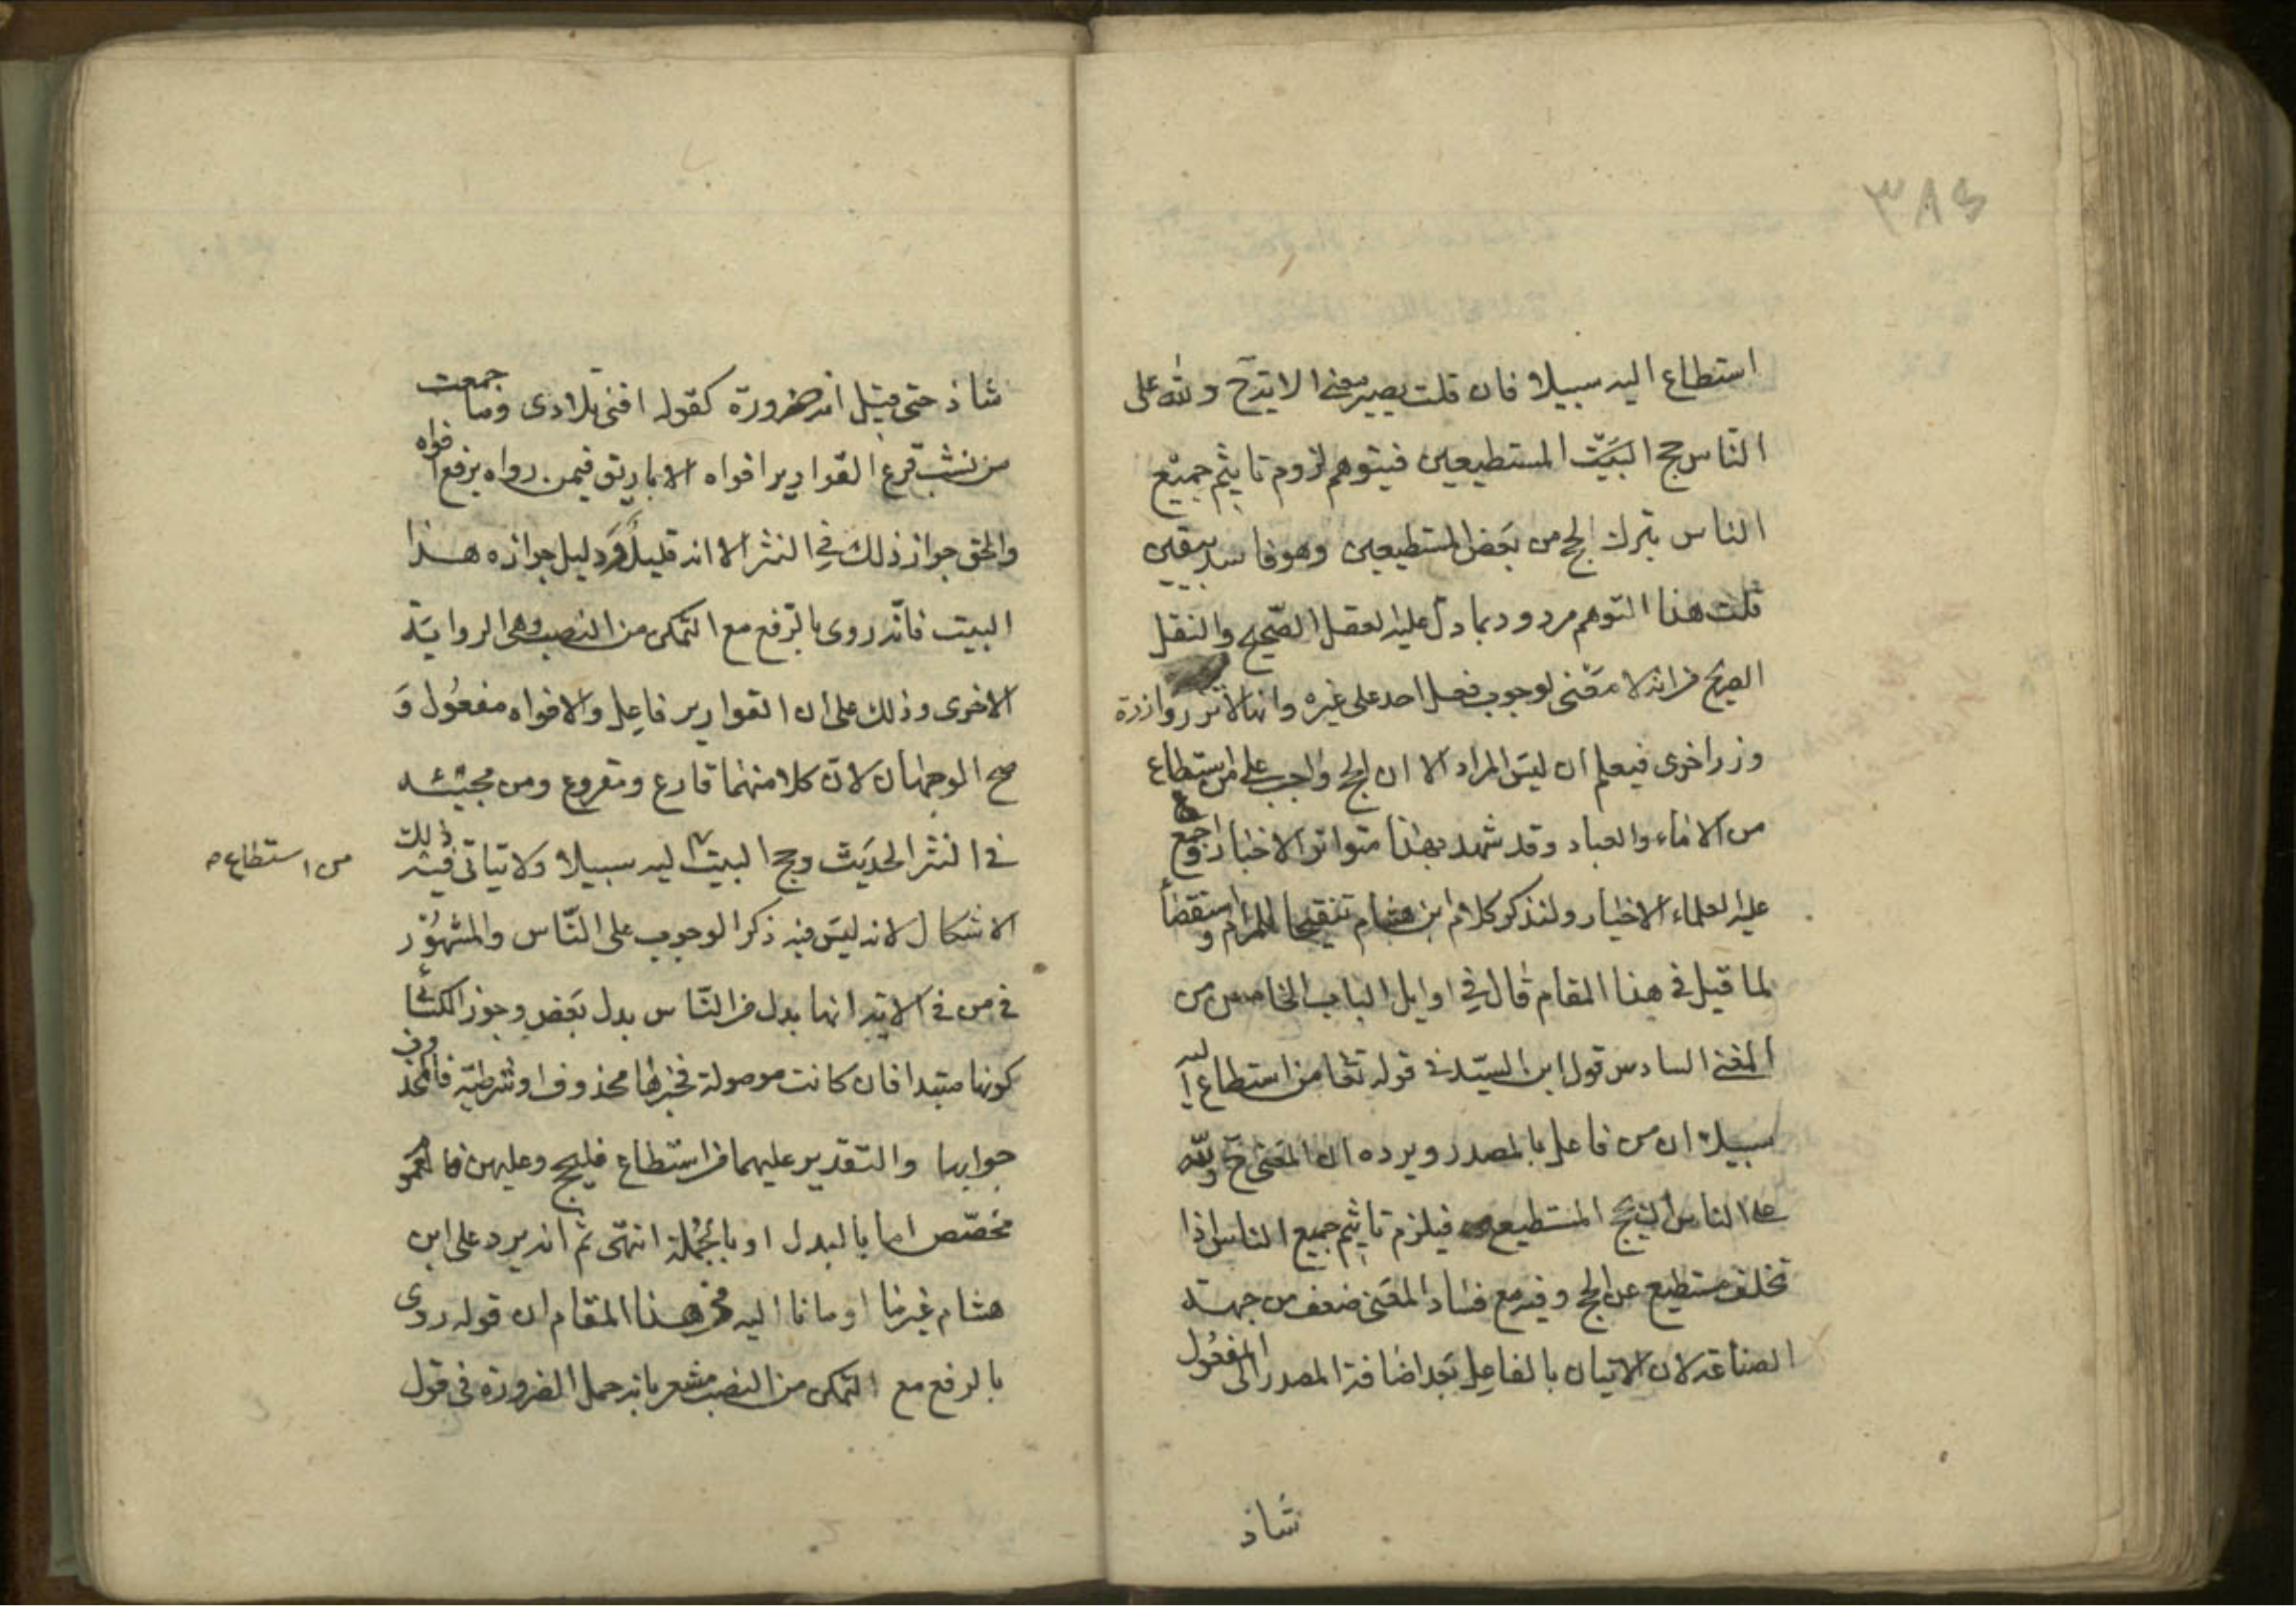 ٣٨٤
استطاع اليه سبيلا فان قلت يصير معنى الاية ح ولله على
الناس حج البيت المستطيعين فيتوهم لزوم تاثيم جميع
الناس بترك الحج من بعض المستطيعين وهو فاسد بيقين
قلت هذا التوهم مردود بما دل عليه العقل الصحيح والنقل
الصريح من انه لا معنى لوجوب فعل احد على غيره وانها لا تزر وازرة
وزر اخرى فيعلم ان ليس المراد الا ان الحج واجب على من استطاع
من الاماء والعباد وقد شهد بهذا متواتر الاخبار واجمع
عليه العلماء الاخيار ولنذكر كلام ابن هشام تنقيحا للمرام و استقضأ
لما قيل في هذا المقام قال في اوايل الباب الخامس من
المغنى السادس قول ابن السيد في قوله تعا من استطاع اليه
سبيلا ان من فاعل بالمصدر ويرده ان المعنى ح ولله
على الناس ان يحج المستطيع فيلزم تاثيم جميع الناس اذا
تخلف مستطيع عن الحج وفيه مع فساد المعنى ضعف من جهة
الصناعة لان الاتيان بالفاعل بعد اضافة المصدر الى المفعول
شاذ
شاذ حتى قيل انه ضرورة كقوله افنى تلادى وما جمعت
من نشب قرع القوارير افواه الاباريق فيمن رواه برفع افواه
والحق جواز ذلك في النثر الا انه قليل ودليل جوازه هذا
البيت فانه روى بالرفع مع التمكن من النصب وهى الرواية
الاخرى وذلك على ان القوارير فاعل والافواه مفعول و
صح الوجهان لان كلا منهما قارع ومقروع ومن مجيئه
في النثر الحديث وحج البيت اليه سبيلا ولا يتاتى فيه ذلك
من استطاع ص
الاشكال لانه ليس فيه ذكر الوجوب على الناس والمشهور
في من في الاية انها بدل من الناس بدل بعض وجوز الكسائي
كونها مبتدا فان كانت موصولة فخبرها محذوف او شرطية فالمحذوف
جوابها والتقدير عليهما من استطاع فليحج وعليهن فالعمو
مخصص اما بالبدل او بالجملة انتهى ثم انه يرد على ابن
هشام غير ما اومانا اليه من هذا المقام ان قوله روى
بالرفع مع التمكن من النصب مشعر بانه حمل الضرورة في قول